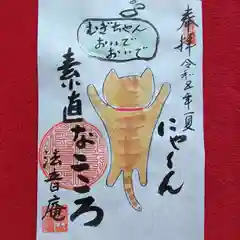 奉拝 令和五年夏
むぎちゃん
おいで
おいで
にゃ〜ん
素直なこころ
法音庵